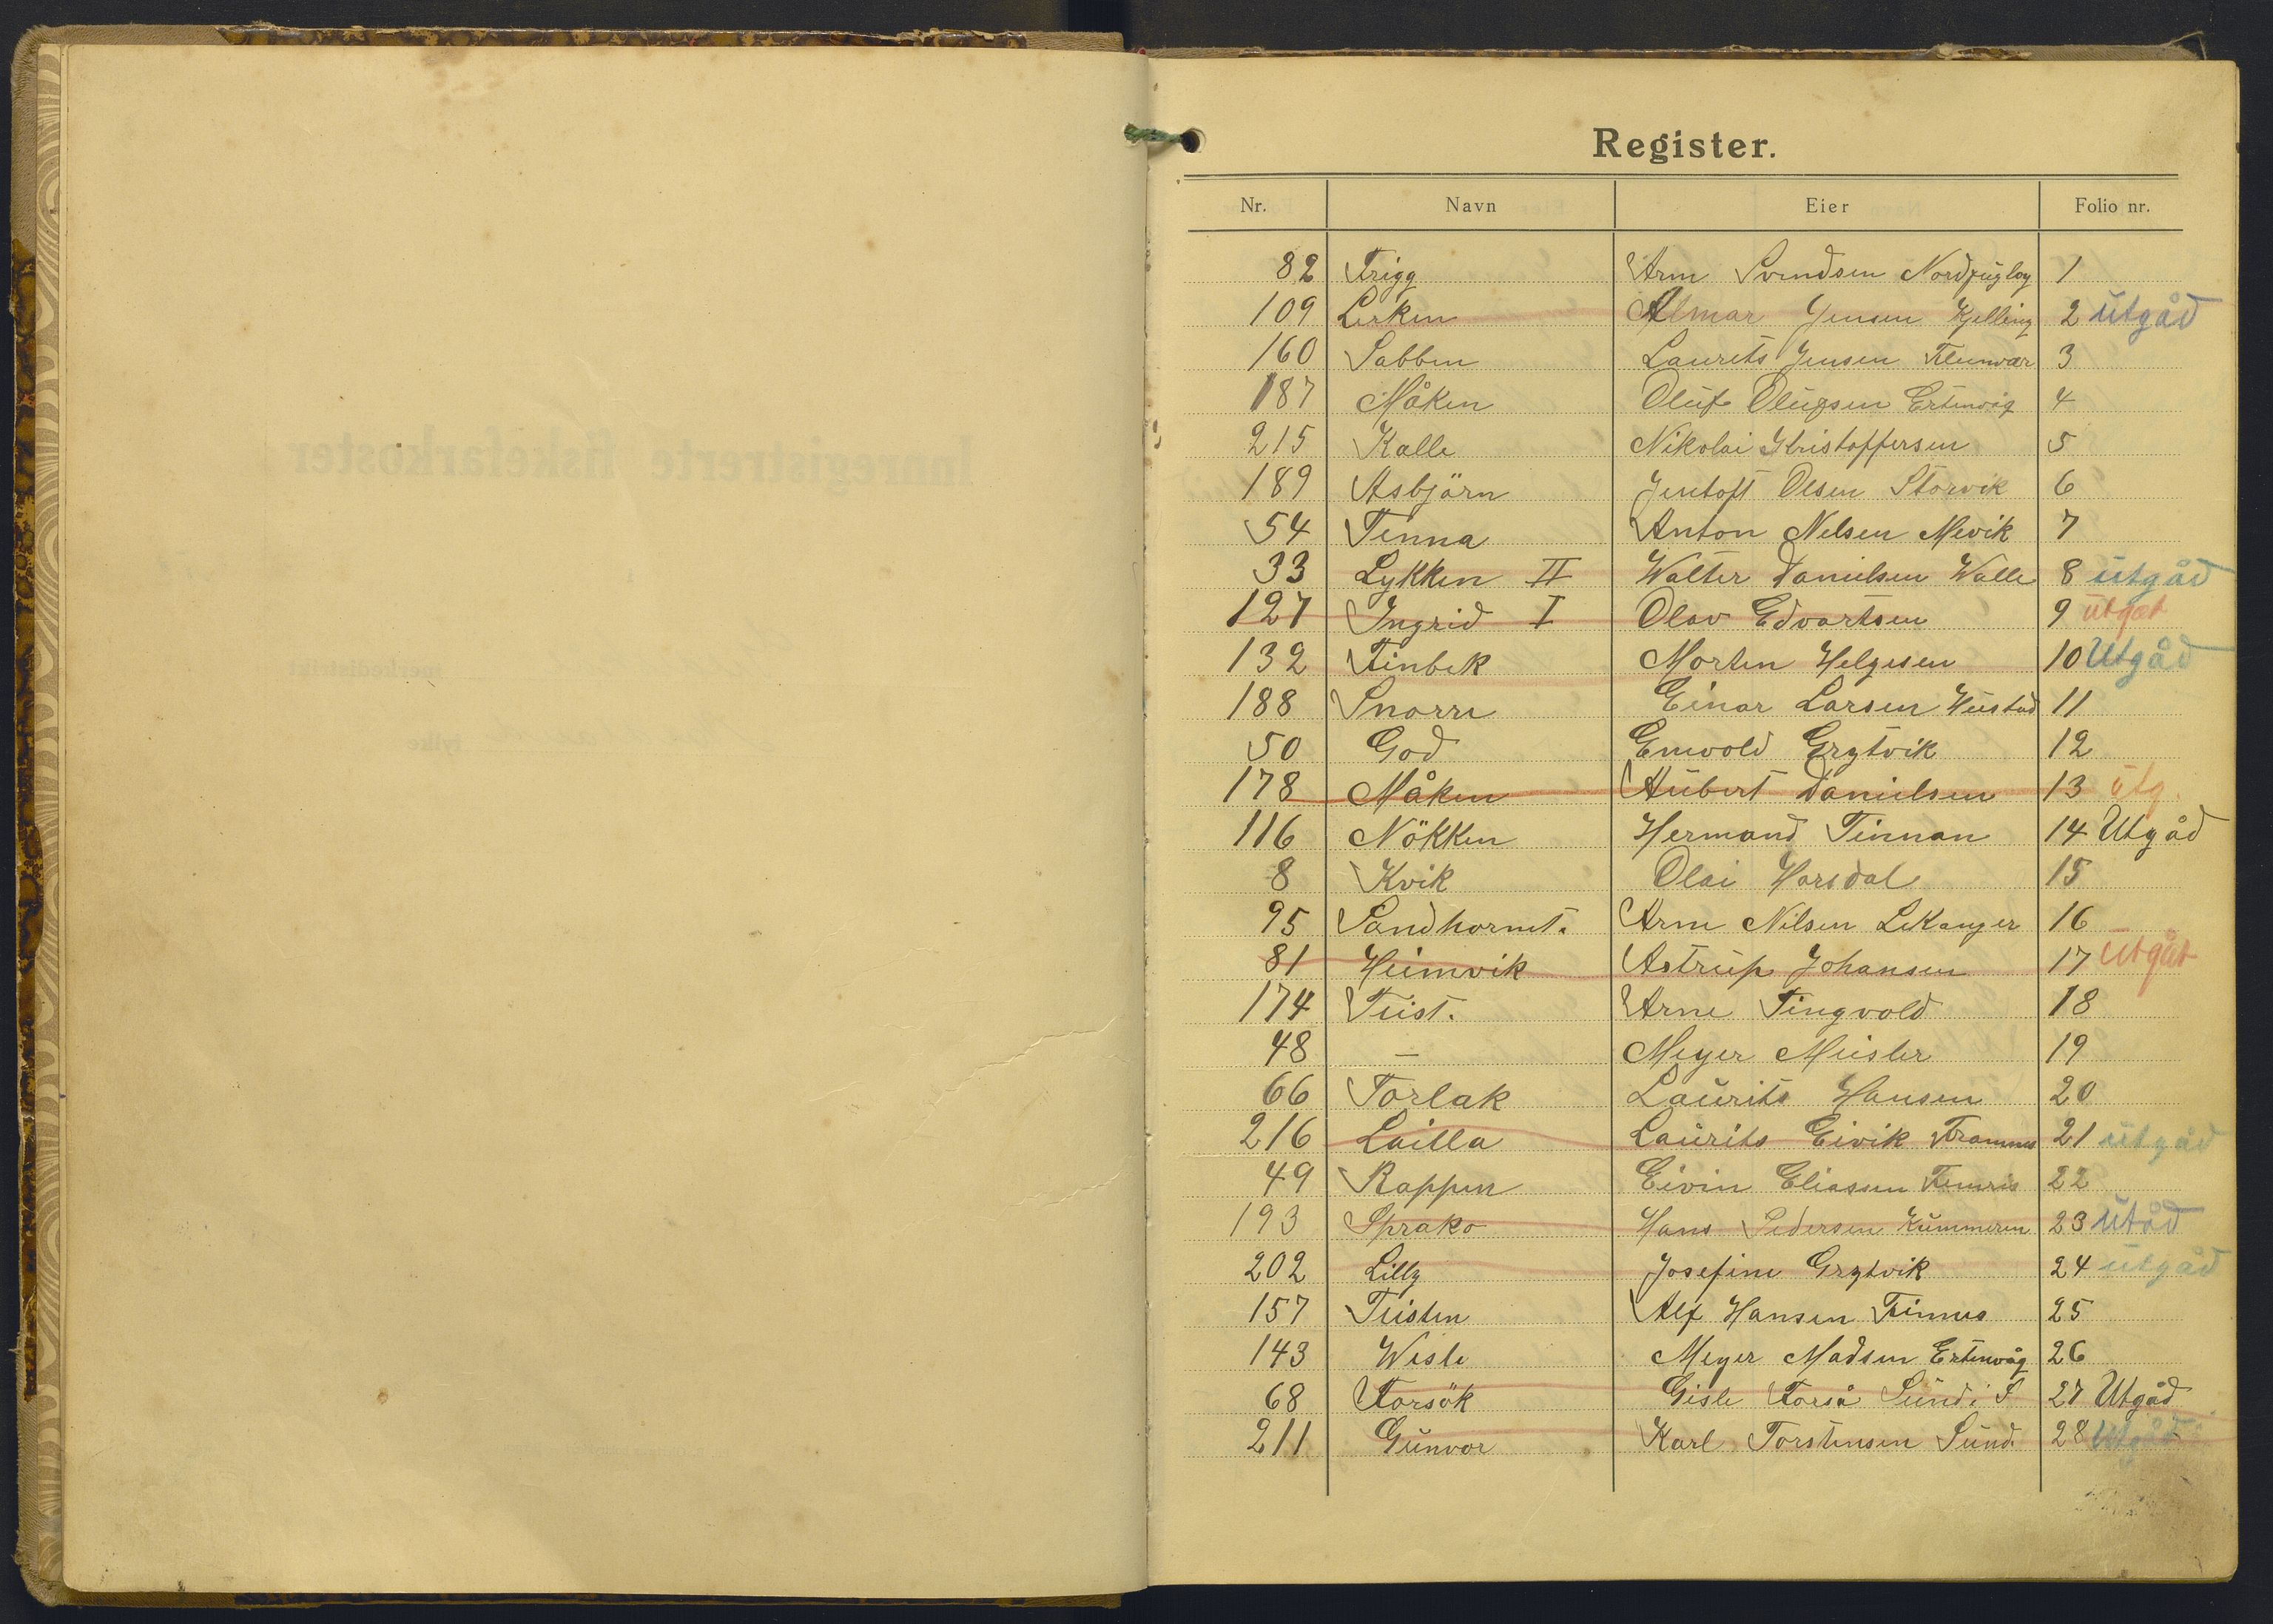 Register.
Nr. Navn Eier Folio nr.
82 Trygg Arne Svendsen Nordfugløy 1
109 Lerken Almar Jensen Kjelling 2 utgåd
160 Sabben Laurits Jensen Fleinvær 3
187 Måken Oluf Olufsen Ertenvåg 4
215 Kalle Nikolai Kristoffersen 5
189 Asbjörn Jentoft Olsen Storvik 6
54 Tenna Anton Nelsen Mevik 7
33 Lykken II Walter Danielsen Walle 8 utgåd
127 Ingrid I Olav Edvartsen 9 utgåt
132 Finbek Morten Helgesen 10 Utgåd
188 Snorre Einar Larsen 11
50 God Enevold Grytvik 12
178 Måken Hubert Danielsen 13 utg.
116 Nökken Hermand Finnan 14 Utgåd
8 Kvik Olai Horsdal 15
95 Sandhornet. Arne Nilsen Lekanger 16
81 Heimvik Astrup Johansen 17 Utgåt
174 Teist. Arne Tingvold 18
48 — Meyer Meisler 19
66 Torlak Laurits Hansen 20
216 Lailla Laurits Eivik Framnes 21 utgåd
49 Rappen Eivin Eliassen Femris 22
193 Sprako Hans Pedersen 23 Utåd
202 Lilly Josefine Grytvik 24 utgåd
157 Teisten Alf Hansen Finnes 25
143 Wesle Meyer Madsen Ertenvåg 26
68 Forsök Gisle Forså Sund i S 27 Utgåd
211 Gunvor Karl Torstensen Sund. 28 Utgåd